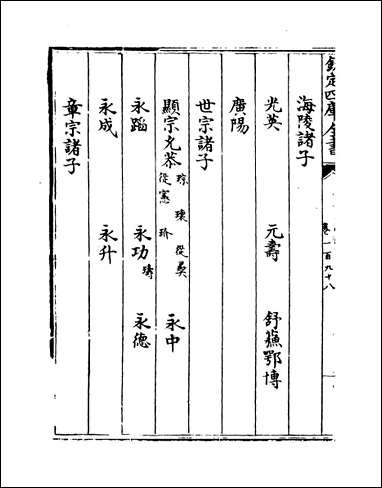 欽定四庫全書 卷一百九十八
海陵諸子
光英 元壽 舒蘓鄂博
廣陽
世宗諸子
顯宗允恭 琮 瓌 從彛 從憲 玠 永中
永蹈 永功 璹 永德
永成 永升
章宗諸子